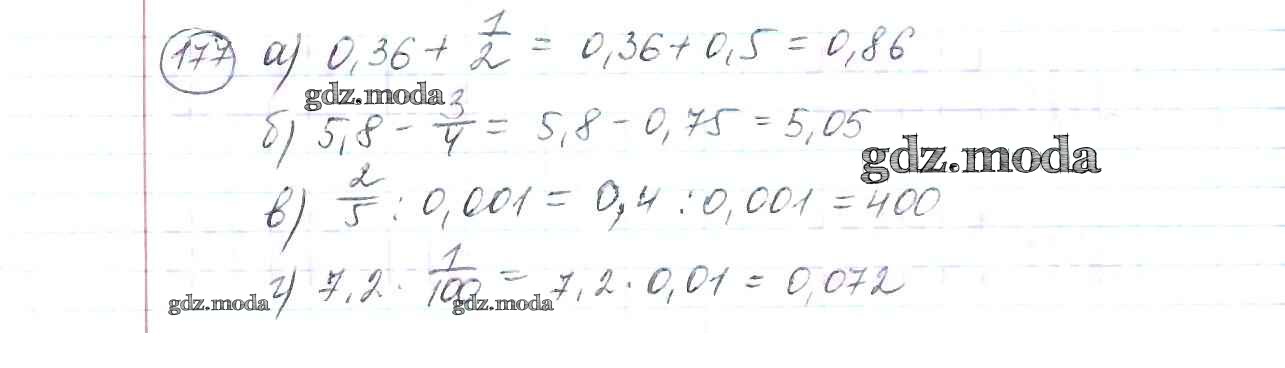 177 а) 0,36 + 1/2 = 0,36 + 0,5 = 0,86
gdz.moda
б) 5,8 - 3/4 = 5,8 - 0,75 = 5,05
gdz.moda
в) 2/5 : 0,001 = 0,4 : 0,001 = 400
г) 7,2 · 1/100 = 7,2 · 0,01 = 0,072
gdz.moda gdz.moda